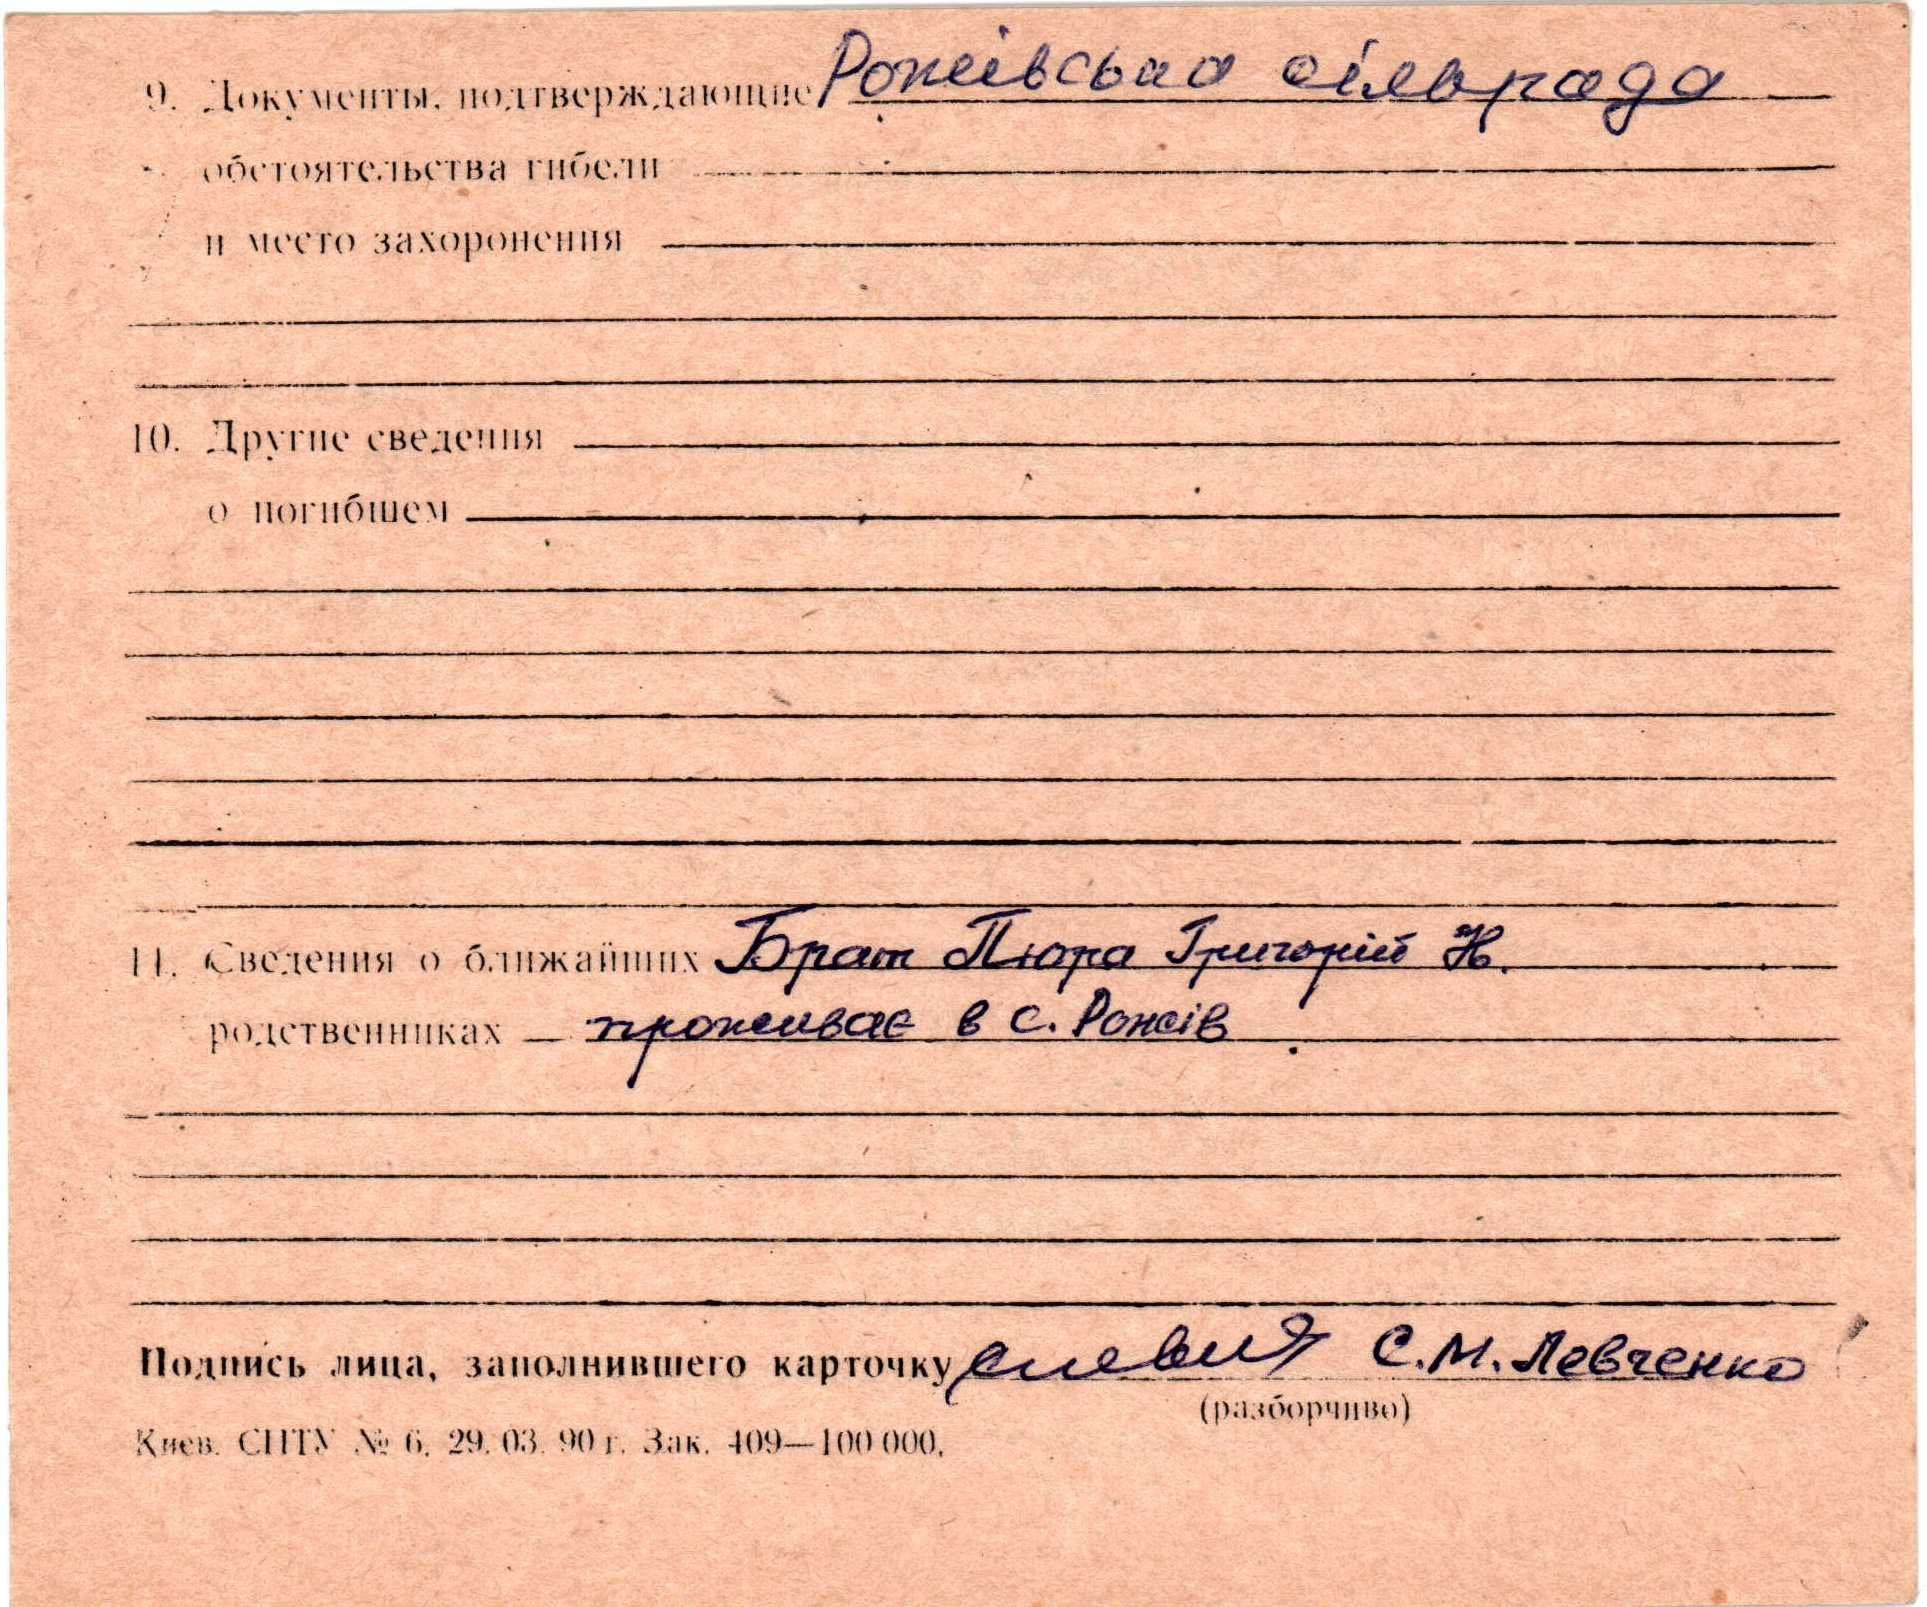 9. Документы, подтверждающие Рожівська сільрада
обстоятельства гибели
и место захоронения
10. Другие сведения
о погибшем
11. Сведения о ближайших Брат Пюра Григорій Н.
родственниках проживає в с. Рожів
Подпись лица, заполнившего карточку С.М. Левченко
(разборчиво)
Киев. СПТУ № 6. 29. 03. 90 г. Зак. 409—100 000.